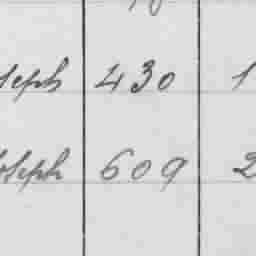 oseph 430 1
oseph 609 2